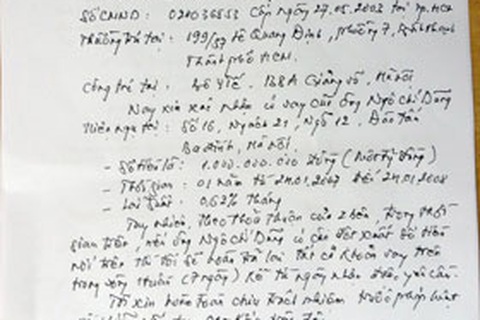 Số CMND: 020036553 Cấp ngày 27.05.2003 tại Tp.HCM
Thường trú tại: 199/37 Lê Quang Định, phường 7, Bình Thạnh
Thành phố HCM.
Công tác tại: Bộ Y Tế. 138A Giảng Võ, Hà Nội
Nay xin xác nhận có vay của ông Ngô Chí Dũng
Hiện ngụ tại: Số 16, Ngách 21, Ngõ 12, Đào Tấn
Ba Đình, Hà Nội.
- Số tiền là: 1.000.000.000 đồng (Một tỷ đồng)
- Thời gian: 01 năm từ 24.01.2007 đến 24.01.2008
- Lãi suất: 0,62% tháng
Tuy nhiên, theo thoả thuận của 2 bên, trong thời
gian trên, nếu ông Ngô Chí Dũng có cần đột xuất số tiền
nói trên thì tôi sẽ hoàn trả lại tất cả khoản vay trên
trong vòng 1 tuần (7 ngày) kể từ ngày nhận được yêu cầu.
Tôi xin hoàn toàn chịu trách nhiệm trước pháp luật